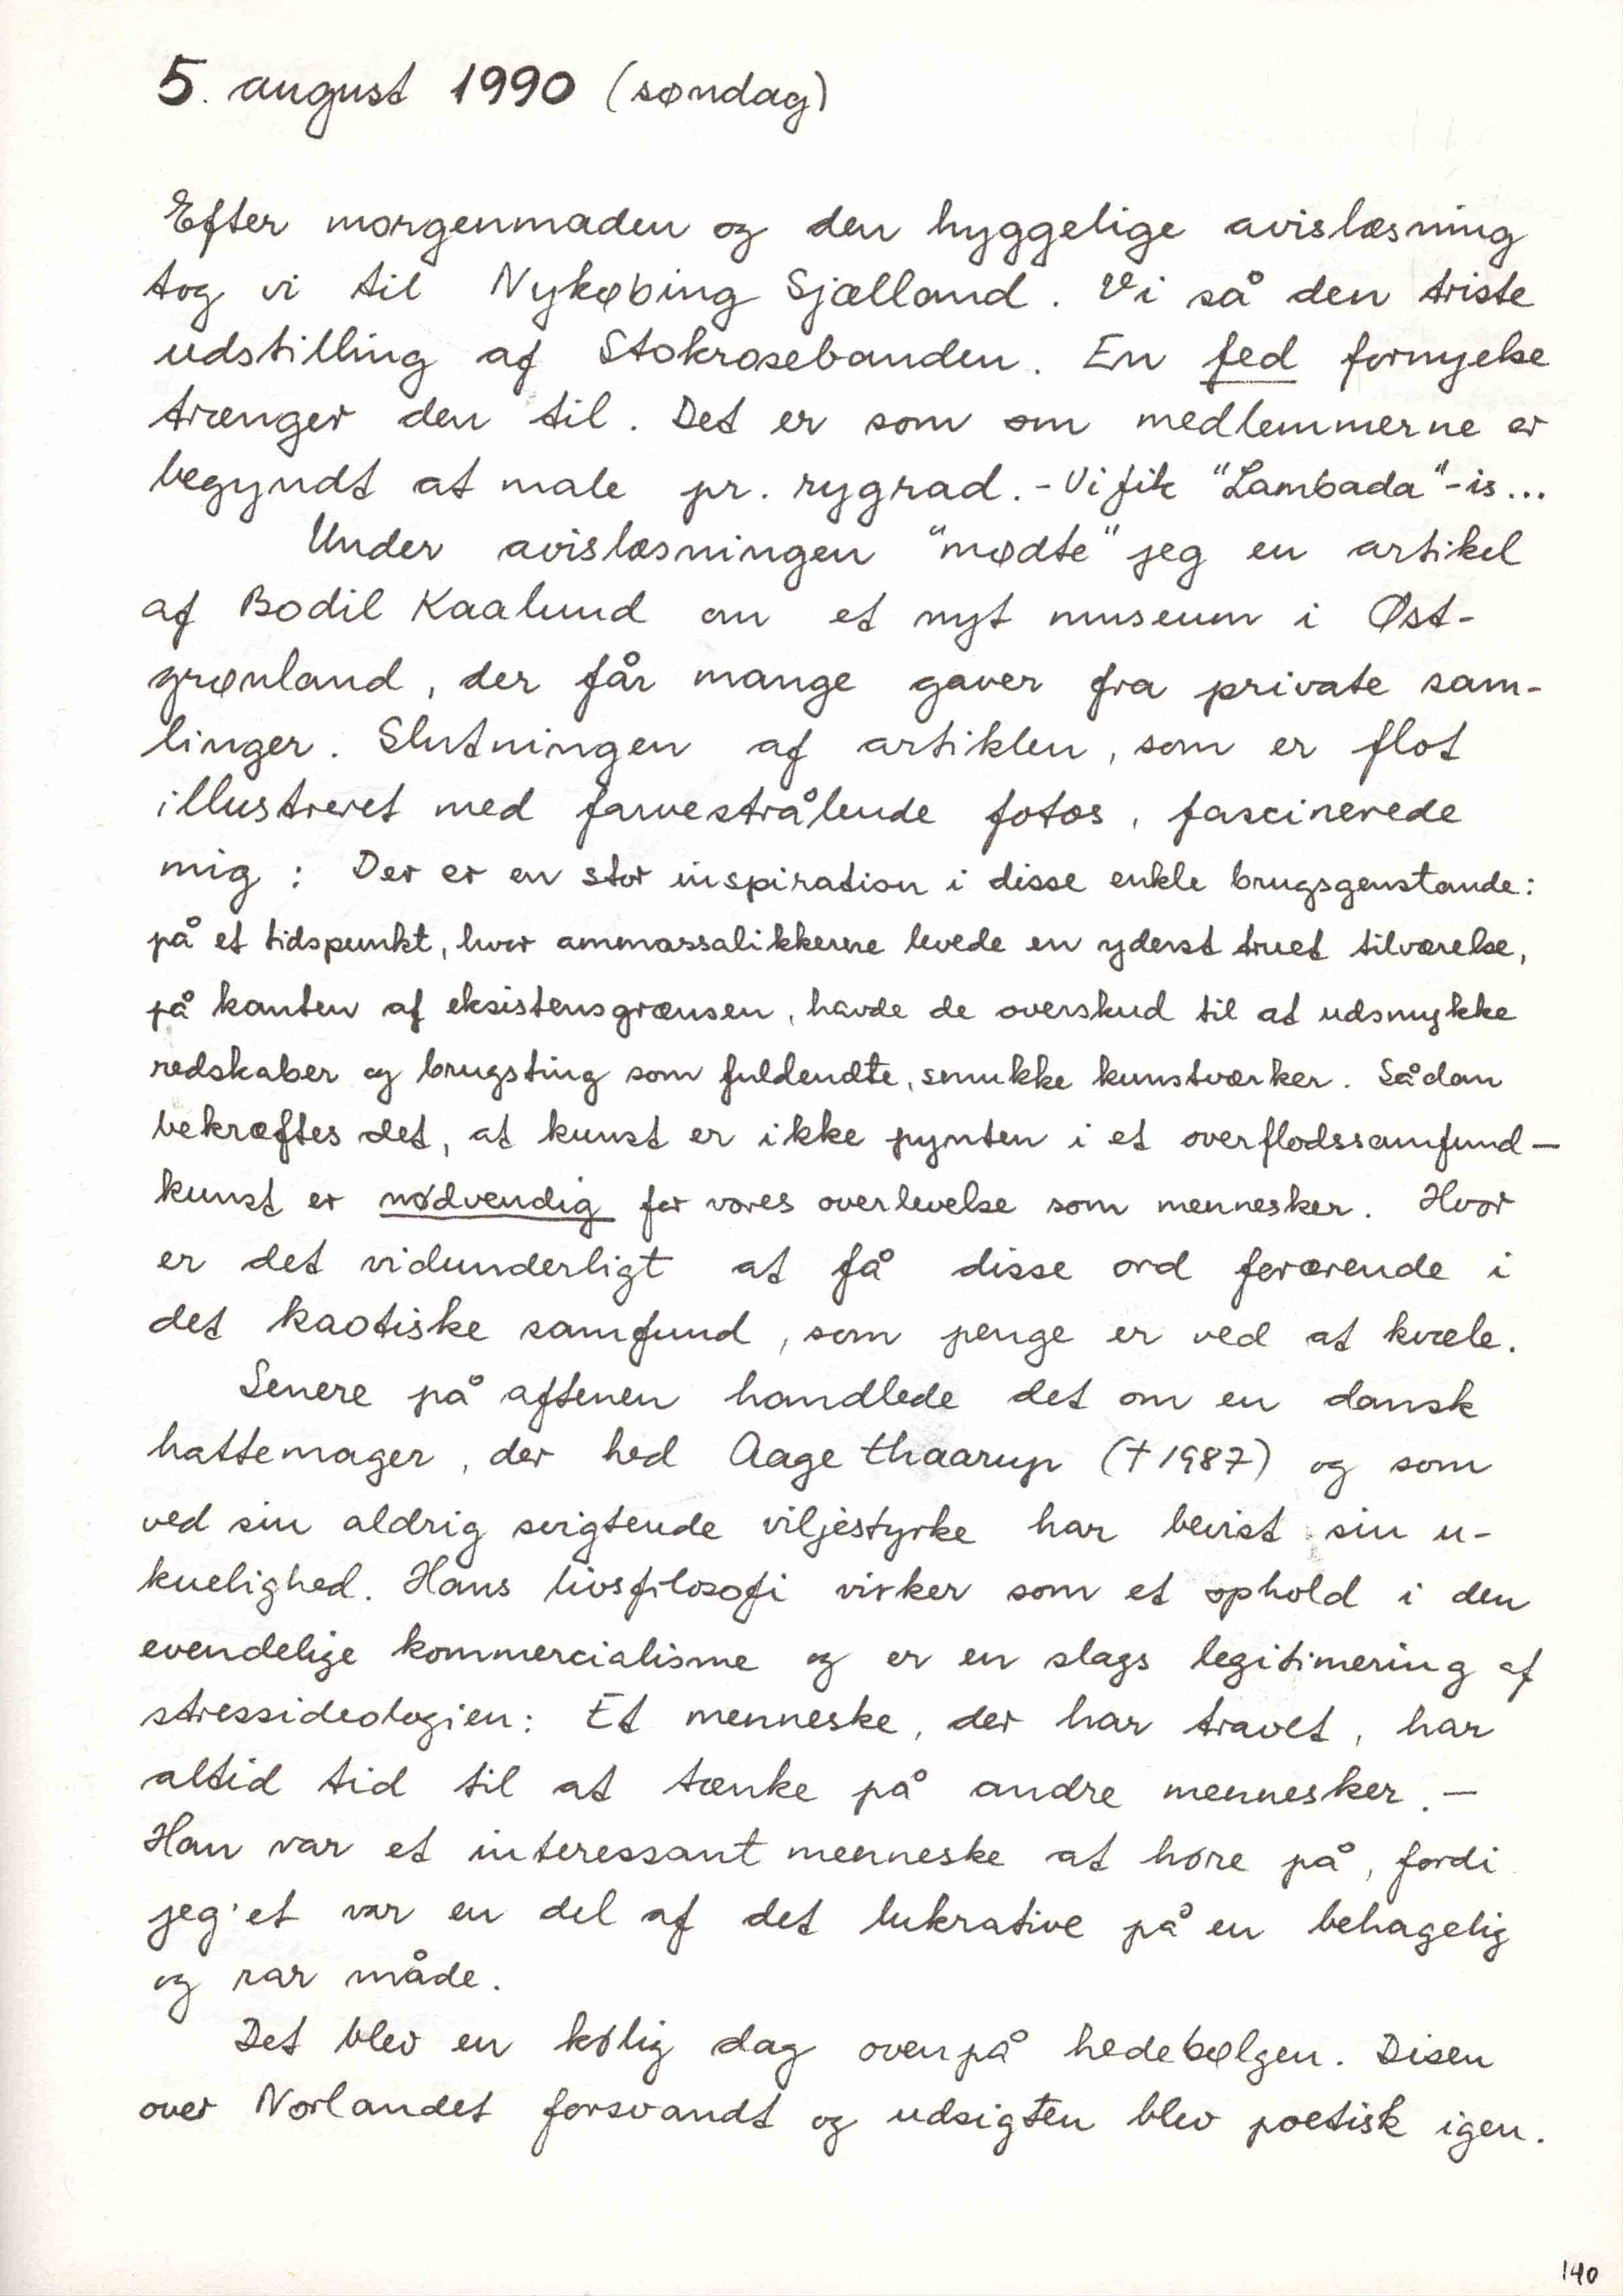 5. august 1990 (søndag)
Efter morgenmaden og den hyggelige avislæsning
tog vi til Nykøbing Sjælland. Vi så den triste
udstilling af Stokrosebanden. En fed fornyelse
trænger den til. Det er som om medlemmerne er
begyndt at male pr. rygrad. - Vi fik "Lambada"-is...
Under avislæsningen "mødte" jeg en artikel
af Bodil Kaalund om et nyt museum i Øst-
grønland, der får mange gaver fra private sam-
linger. Slutningen af artiklen, som er flot
illustreret med farvestrålende fotos, fascinerede
mig: Der er en stor inspiration i disse enkle brugsgenstande:
på et tidspunkt, hvor ammassalikkerne levede en yderst truet tilværelse,
på kanten af eksistensgrænsen, havde de overskud til at udsmykke
redskaber og brugsting som fuldendte, smukke kunstværker. Sådan
bekræftes det, at kunst er ikke pynten i et overflodssamfund —
kunst er nødvendig for vores overlevelse som mennesker. Hvor
er det vidunderligt at få disse ord forærende i
det kaotiske samfund, som penge er ved at kvæle.
Senere på aftenen handlede det om en dansk
hattemager, der hed Aage Thaarup († 1987) og som
ved sin aldrig svigtende viljestyrke har bevist sin u-
kuelighed. Hans livsfilosofi virker som et ophold i den
evendelige kommercialisme og er en slags legitimering af
stressideologien: Et menneske, der har travlt, har
altid tid til at tænke på andre mennesker. —
Han var et interessant menneske at høre på, fordi
jeg'et var en del af det lukrative på en behagelig
og rar måde.
Det blev en kølig dag ovenpå hedebølgen. Disen
over Norlandet forsvandt og udsigten blev poetisk igen.
140